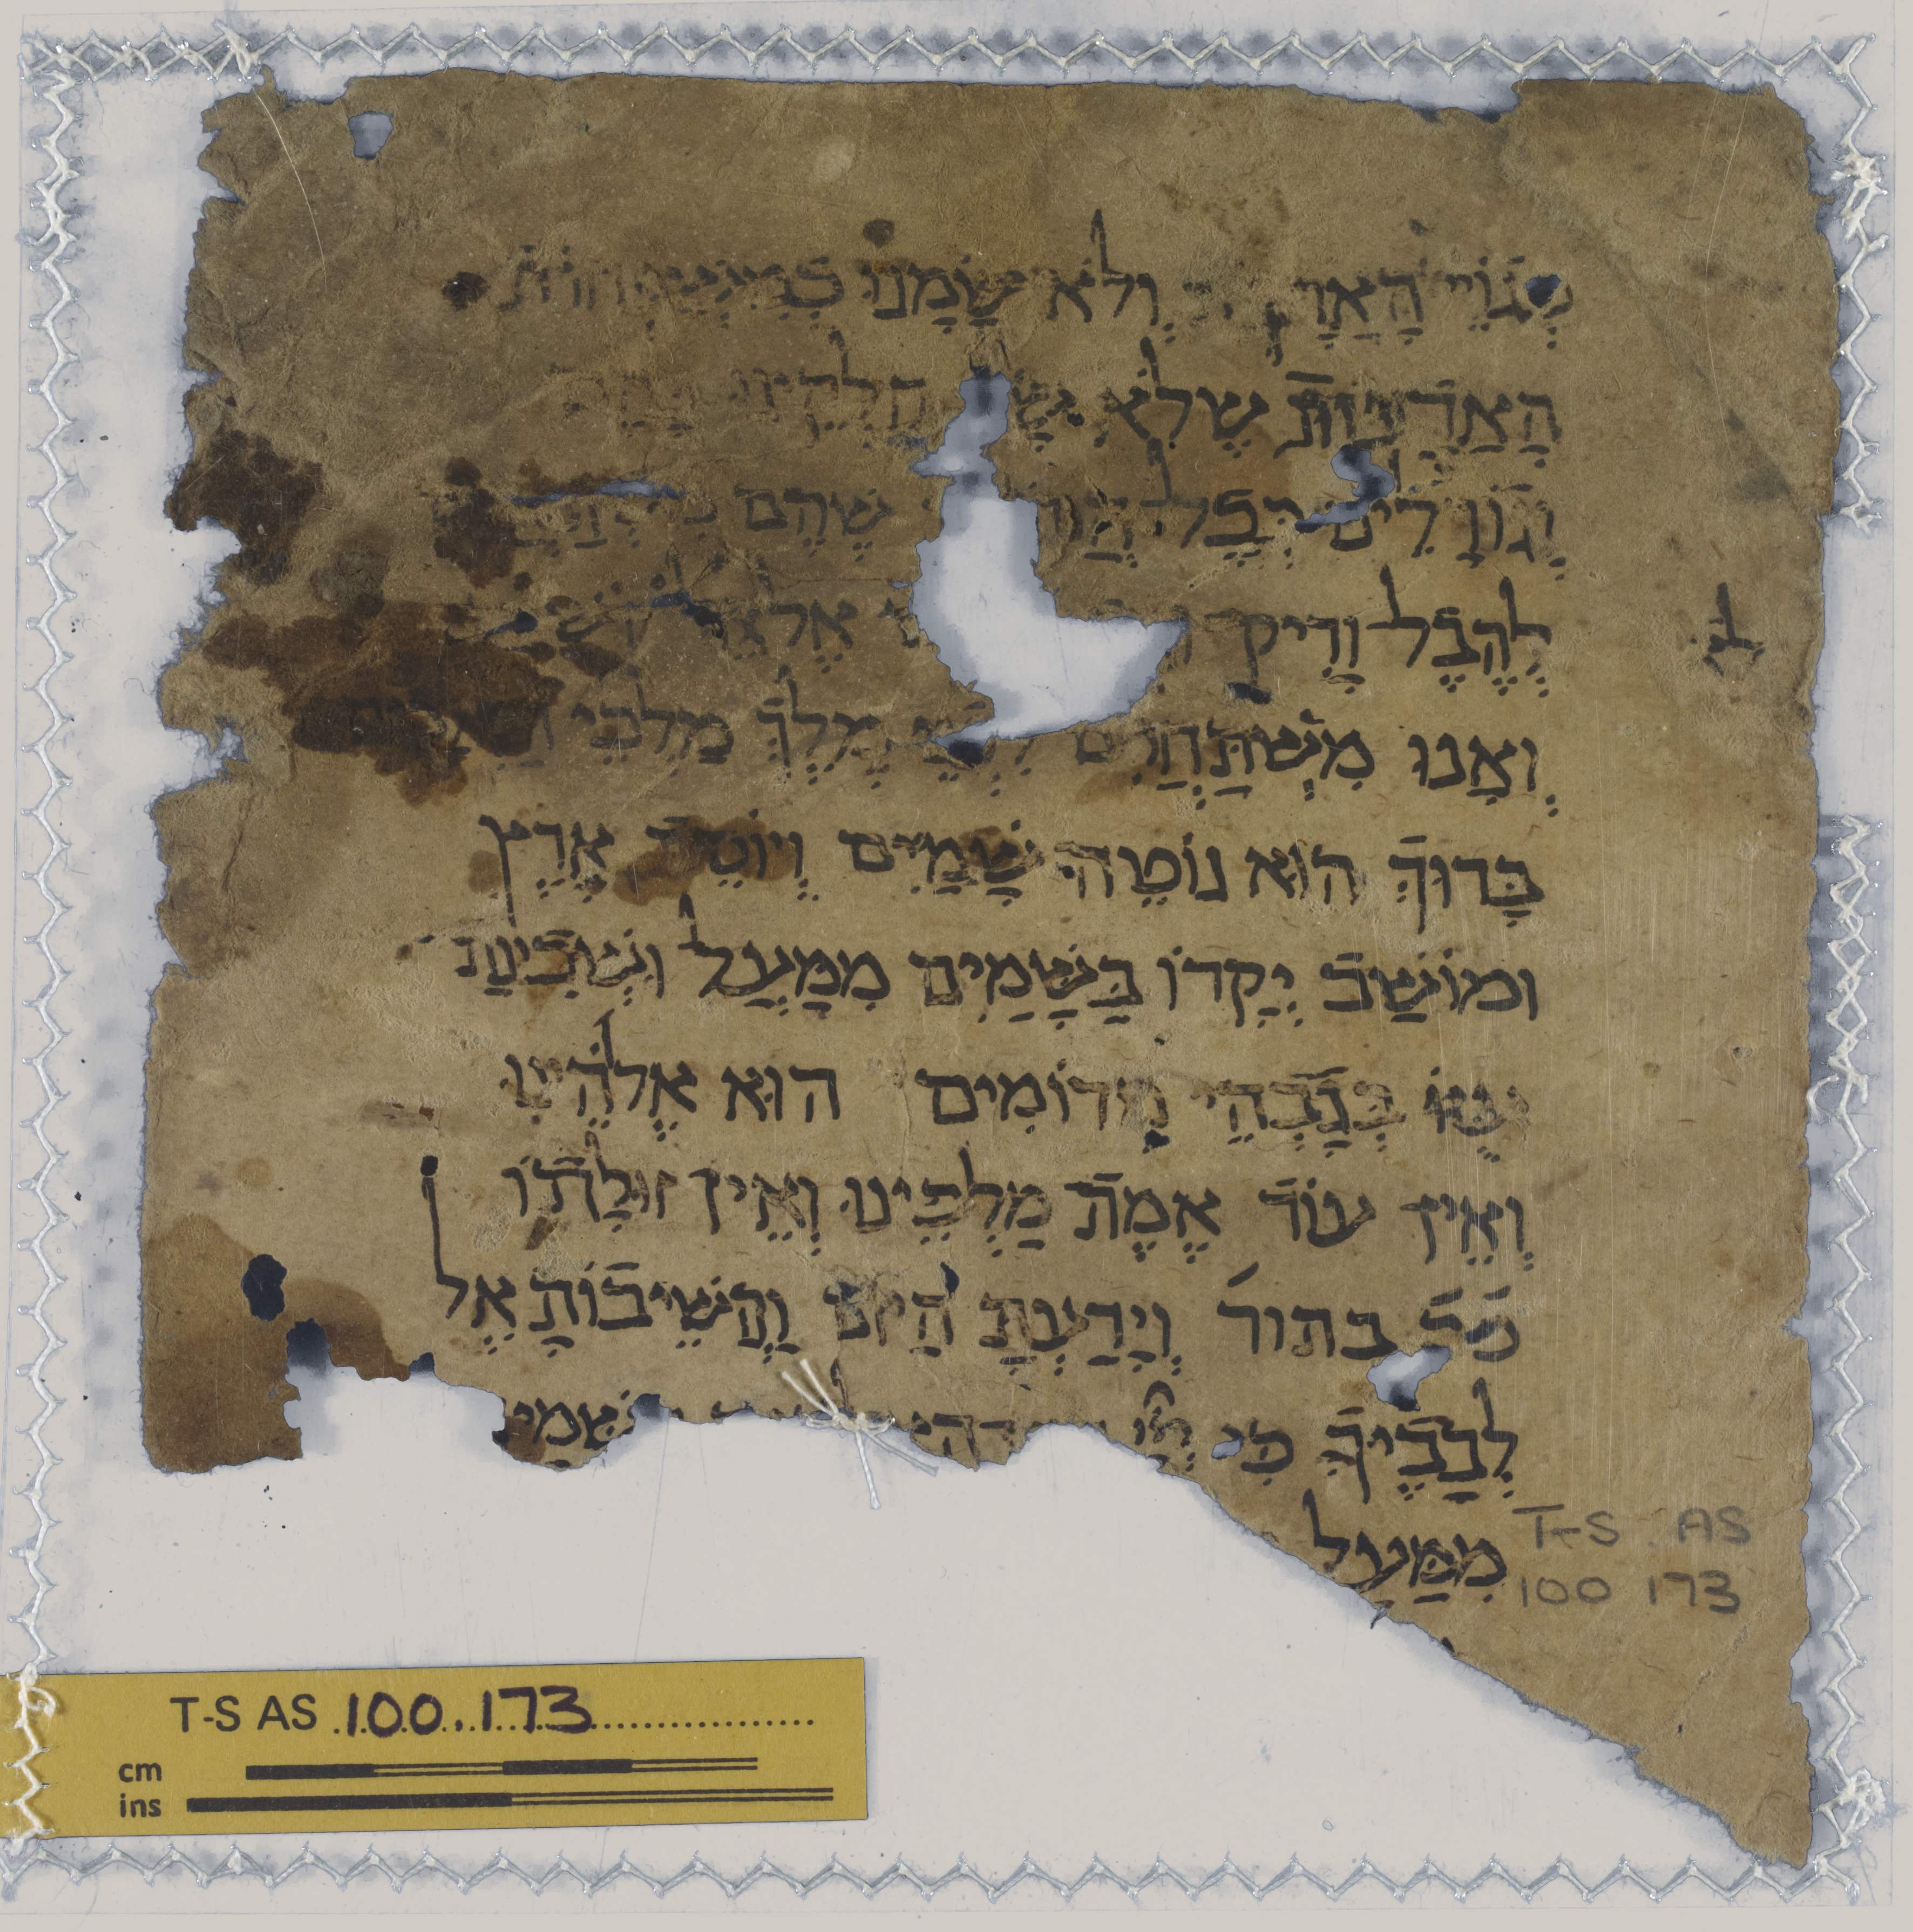 הָאֲרָצוֹת וְלֹא שָׂמָנוּ כְּמִשְׁפְּחוֹת
הָאֲדָמוֹת שֶׁלֹּא
שֶׁהֶם
לְהֶבֶל וָרִיק
ל
וְאָנוּ מִשְׁתַּחֲוִים מֶלֶךְ מַלְכֵי
בָּרוּךְ הוּא נוֹטֶה שָׁמַיִם וְיוֹסֵד אֶרֶץ
וּמוֹשַׁב יְקָרוֹ בַּשָּׁמַיִם מִמַּעַל וּשְׁכִינַת
עֻזּוֹ בְּגָבְהֵי מְרוֹמִים הוּא אֱלֹהֵינוּ
וְאֵין עוֹד אֱמֶת מַלְכֵּינוּ וְאֵין זוּלָתוֹ
בתור וְיָדַעְתָּ הַיּוֹם וַהֲשֵׁיבוֹתָ אֶל
לְבָבֶיךָ כִּי
מִמַּעַל
T-S AS
100 173
T-S AS 100.173
cm
ins